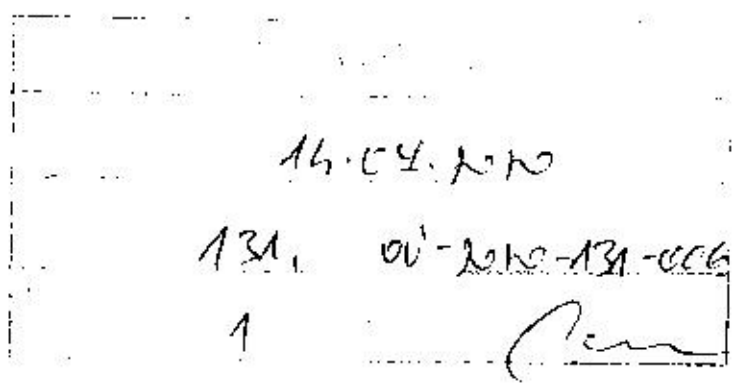 14.04.2010
131, OÚ-2010-131-006
1